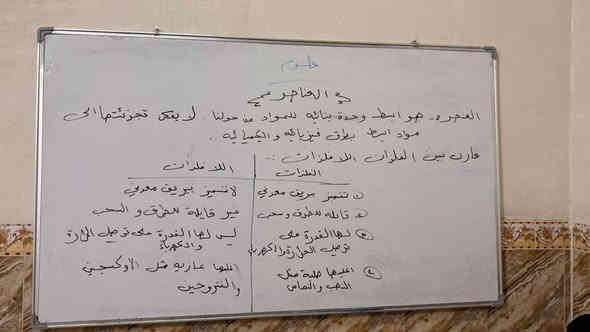 علوم
العناصر
العنصر: هو ابسط وحدة بنائية للمواد من حولنا. لا يمكن تجزئتها الى
مواد ابسط بطرق فيزيائية والكيميائية.
قارن بين الفلزات اللافلزات :
الفلزات
اللافلزات
① تتميز ببريق معدني
لا تتميز ببريق معدني
② قابلة للطرق وسحب
غير قابلة للطرق و السحب
③ لها القدرة على
توصيل الحرارة والكهرباء
ليس لها القدرة على توصيل الحرارة
والكهرباء
④ اغلبها صلبة مثل
الذهب والنحاس
اغلبها غازية مثل الاوكسجين
والنتروجين